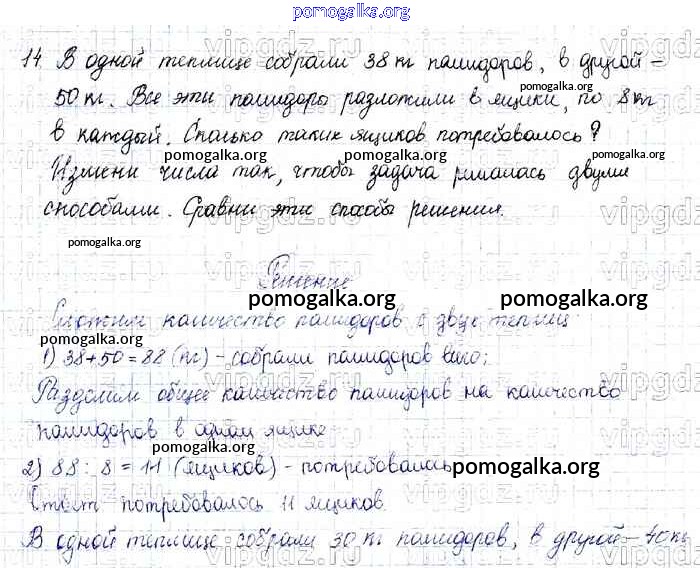 pomogalka.org
14 В одной теплице собрали 38 кг помидоров, в другой –
pomogalka.org
50 кг. Все эти помидоры разложили в ящики, по 8 кг
в каждый. Сколько таких ящиков потребовалось?
pomogalka.org pomogalka.org pomogalka.org
Измени числа так, чтобы задача решалась двумя
способами. Сравни эти способы решения.
pomogalka.org
Решение
pomogalka.org pomogalka.org
Сложим количество помидоров с двух теплиц:
1) 38+50=88 (кг) – собрали помидоров всего;
Разделим общее количество помидоров на количество
помидоров в одном ящике
2) 88 : 8 = 11 (ящиков) – потребовалось
pomogalka.org
Ответ потребовалось 11 ящиков.
В одной теплице собрали 30 кг помидоров, в другой – 40 кг